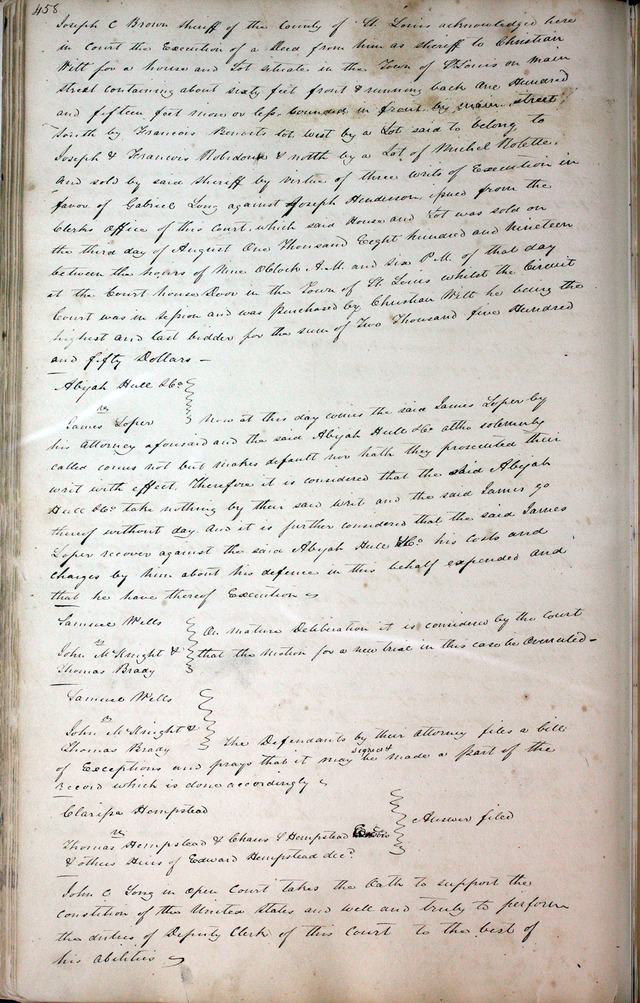 458
Joseph C Brown sheriff of the County of St. Louis acknowledged here
in Court the Execution of a Deed from him as sheriff to Christian
Wilt for a house and Lot situate in the Town of St Louis on main
street containing about sixty feet front & running back One Hundred
and fifteen feet more or less, bounded in front by main street,
South by Francois Benoits lot west by a Lot said to belong to
Joseph & Francois Robidoux & north by a Lot of Michel Rolette.
And sold by said Sheriff by virtue of three writs of Execution in
favor of Gabriel Long against Joseph Henderson issued from the
Clerks Office of this Court. which said House and Lot was sold on
the third day of August One Thousand Eight hundred and Nineteen
between the hours of Nine OClock A.M. and six P.M. of that day
at the Court house Door in the Town of St. Louis whilst the Circuit
Court was in session and was purchased by Christian Wilt he being the
highest and last bidder for the sum of Two Thousand five Hundred
and fifty Dollars —
Abijah Hull & Co
vs
James Loper
Now at this day comes the said James Loper by
his attorney aforesaid and the said Abijah Hull & Co altho solemnly
called comes not but makes default nor hath they prosecuted their
writ with effect. Therefore it is considered that the said Abijah
Hull & Co take nothing by their said writ and the said James go
thereof without day. And it is further considered that the said James
Loper recover against the said Abijah Hull & Co his costs and
charges by him about his defence in this behalf expended and
that he have thereof Execution
Samuel Wells
vs
John McKnight &
Thomas Brady
On mature Deliberation it is considered by the Court
that the Motion for a new trial in this case be Overruled —
Samuel Wells
vs
John McKnight &
Thomas Brady
The Defendants by their attorney files a bill
of Exceptions and prays that it may signed & be made a part of the
record which is done accordingly
Clarissa Hempstead
vs
Thomas Hempstead & Chaus S Hempstead
& others Heirs of Edward Hempstead decd.
Answer filed
John C Long in open Court takes the Oath to support the
Constition of the United States and well and truly to perform
the duties of Deputy Clerk of this Court to the best of
his abilities